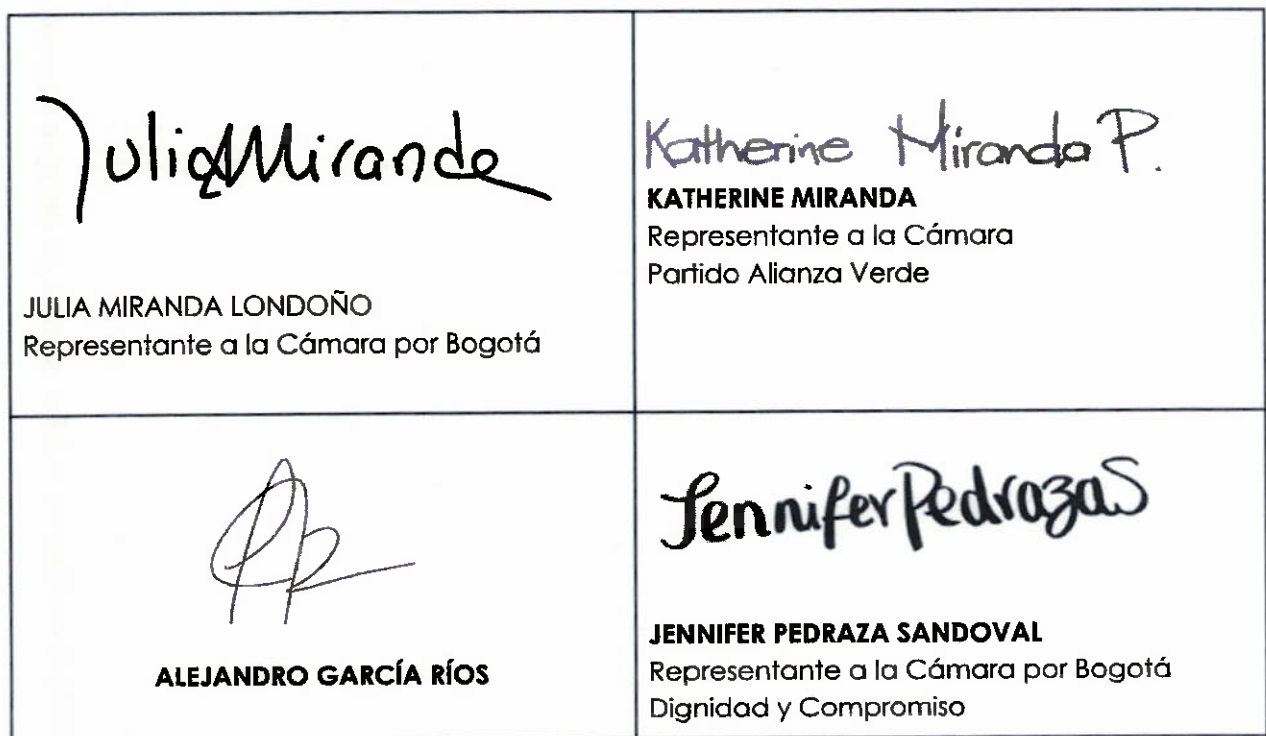 JuliaMiranda
JULIA MIRANDA LONDOÑO
Representante a la Cámara por Bogotá
Katherine Miranda P.
KATHERINE MIRANDA
Representante a la Cámara
Partido Alianza Verde
ALEJANDRO GARCÍA RÍOS
Jennifer Pedraza S
JENNIFER PEDRAZA SANDOVAL
Representante a la Cámara por Bogotá
Dignidad y Compromiso